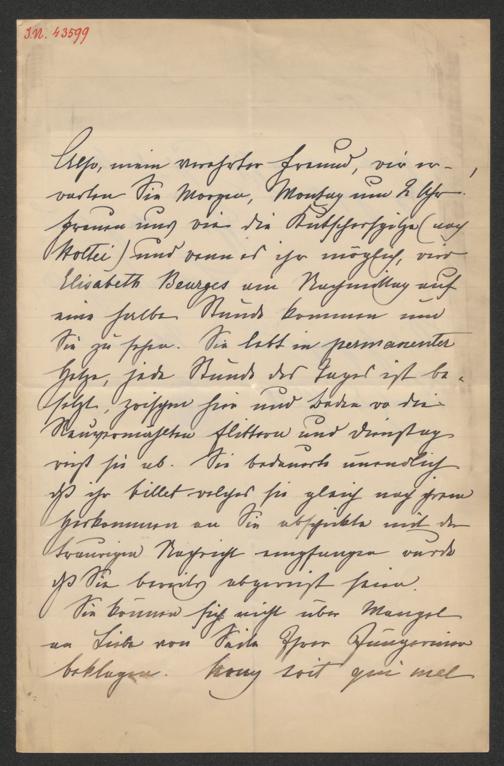 I.N. 43599
Also, mein verehrter Freund, wir er-
warten Sie Morgen, Montag um 2 Uhr.
freuen uns wie die (nach
Holtei) und wenn es ihr möglich, wird
Elisabeth Bourges am Nachmittag auf
eine halbe Stunde kommen um
Sie zu sehen. Sie lebt in permanenter
Hetze, jede Stunde des Tages ist be-
setzt, zwischen hier und Baden wo die
Neuvermählten flittern und Dienstag
reist sie ab. Sie bedauerte unendlich
daß ihr Billet welches sie gleich nach ihrem
Herkommen an Sie abschickte mit der
traurigen Nachricht empfangen wurde
daß Sie bereits abgereist seien.
Sie können sich nicht über Mangel
an Liebe von Seite Ihrer Jüngerinen
beklagen. Hony soit qui mal